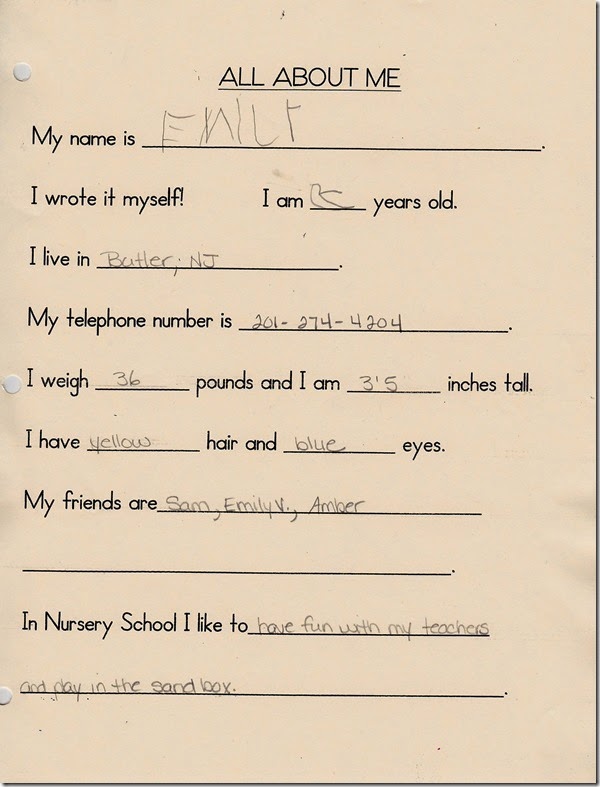 ALL ABOUT ME
My name is EMILY.
I wrote it myself! I am years old.
I live in Butler, NJ.
My telephone number is 201-274-4204.
I weigh 36 pounds and I am 3'5 inches tall.
I have yellow hair and blue eyes.
My friends are Sam, Emily V., Amber
In Nursery School I like to have fun with my teachers
and play in the sand box.